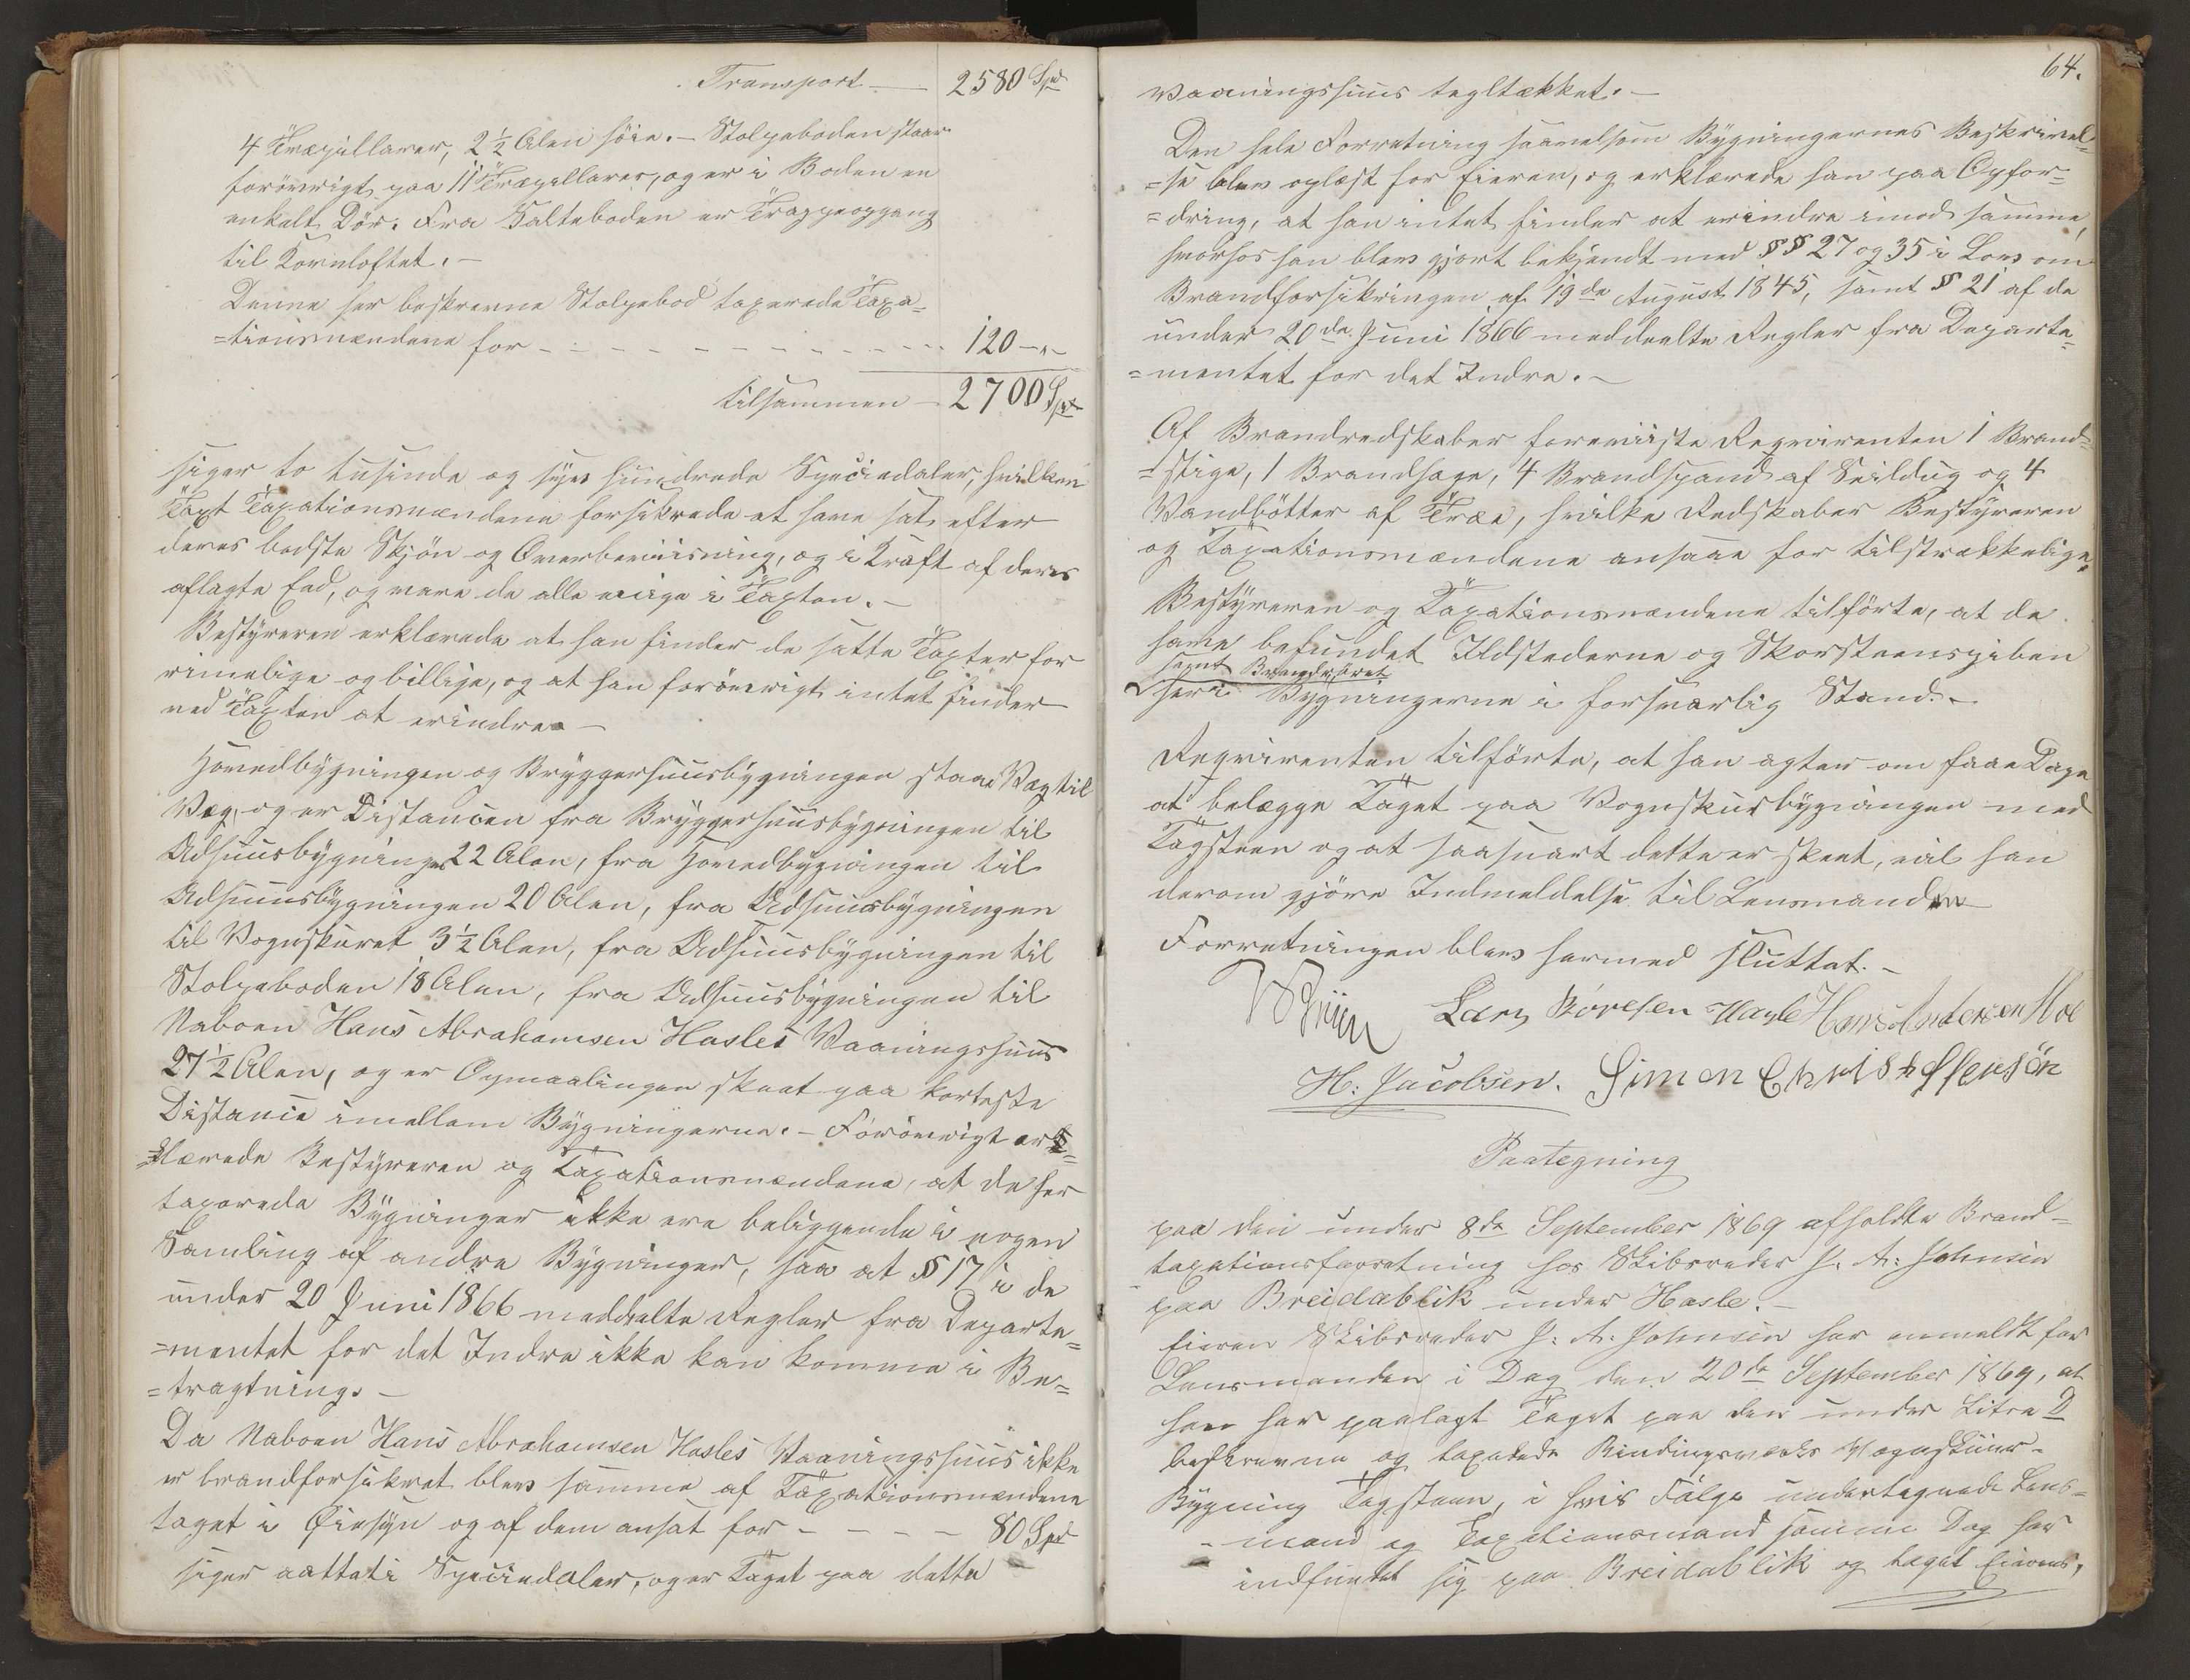 Transport — 2580 Spd
4 Træpillarer, 2½ Alen høie. — Stolpeboden staar
forøvrigt paa 11 Træpillarer, og er i Boden en
enkelt Dör. Fra Salteboden er Trappeopgang
til Kornloftet. —
Denne her beskrevne Stolpebod taxerede Taxa-
=tionsmændene for - - - - - - - - - - 120 – " –
tilsammen — 2700 Spd
siger to tusinde og syv hundrede Speciedaler, hvilken
Taxt Taxationsmændene forsikrede at have sat efter
deres bedste Skjön og Overbeviisning, og i Kraft af deres
aflagte Eed, og vare de alle enige i Taxten. —
Bestyreren erklærede at han finder de satte Taxter for
rimelige og billige, og at han forøvrigt intet finder
ved Taxten at erindre. —
Hovedbygningen og Bryggerhuusbygningen staar Væg til
Væg, og er Distancen fra Bryggerhuusbygningen til
Udhuusbygningen 22 Alen, fra Hovedbygningen til
Udhuusbygningen 20 Alen, fra Udhuusbygningen
til Vognskuret 3½ Alen, fra Udhuusbygningen til
Stolpeboden 18 Alen, fra Udhuusbygningen til
Naboen Hans Abrahamsen Hasles Vaaningshuus
27½ Alen, og er Opmaalingen skeet paa korteste
Distance imellem Bygningerne. — Forøvrigt erk=
=lærede Bestyreren og Taxationsmændene, at de her
taxerede Bygninger ikke ere beliggende i nogen
Samling af andre Bygninger, saa at § 17 i de
under 20 Juni 1866 meddeelte Regler fra Departe=
=mentet for det Indre ikke kan komme i Be=
=tragtning. —
Da Naboen Hans Abrahamsen Hasles Vaaningshuus ikke
er brandforsikret blev samme af Taxationsmændene
taget i Øiesyn og af dem ansat for - - - - 80 Spd
siger aatteti Speciedaler, og er Taget paa dette
64.
Vaaningshuus tegltækket. —
Den hele Forretning saavelsom Bygningernes Beskrivel=
=se blev oplæst for Eieren, og erklærede han paa Opfor=
=dring, at han intet finder at erindre imod samme,
hvorhos han blev gjort bekjendt med §§ 27 og 35 i Lov om
Brandforsikringen af 19de August 1845, samt § 21 af de
under 20de Juni 1866 meddeelte Regler fra Departe=
=mentet for det Indre. —
Af Brandredskaber foreviiste Reqvirenten 1 Brand=
=stige, 1 Brandhage, 4 Brandspand af Seildug og 4
Vandbötter af Træe, hvilke Redskaber Bestyreren
og Taxationsmændene ansaae for tilstrækkelige.
Bestyreren og Taxationsmændene tilförte, at de
have befundet Ildstederne og Skorsteenspiben
samt Brandröret
her i Bygningerne i forsvarlig Stand. —
Reqvirenten tilförte, at han agter om faae Dage
at belægge Taget paa Vognskurbygningen med
Tagsteen og at saasnart dette er skeet, vil han
derom gjöre Indmeldelse til Lensmanden
Forretningen blev hermed sluttet. —
Lars Börresen Hasle Hans Andersen Moe
H. Jacobsen. Simon Christoffersön
Paategning
paa den under 8de September 1869 afholdte Brand-
taxationsforretning hos Skibsreder J. A. Johnsen
paa Breidablik under Hasle. —
Eieren Skibsreder J. A. Johnsen har anmeldt for
Lensmanden i Dag den 20de September 1869, at
han har paalagt Taget paa den under Litra D
beskrevne og taxerede Bindingsværks Vognskuur-
Bygning Tagsteen, i hvis Fölge undertegnede Lens-
-mand og Taxationsmænd samme Dag har
indfundet sig paa Breidablik og taget Eierens,